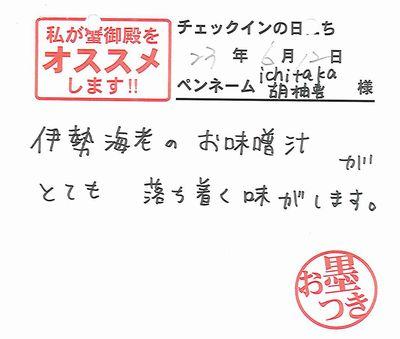 私が蟹御殿を
オススメ
します!!
チェックインの日 ち
23年6月12日
ichitaka
ペンネーム 胡柚香 様
伊勢海老のお味噌汁が
とても 落ち着く味がします。
お墨つき